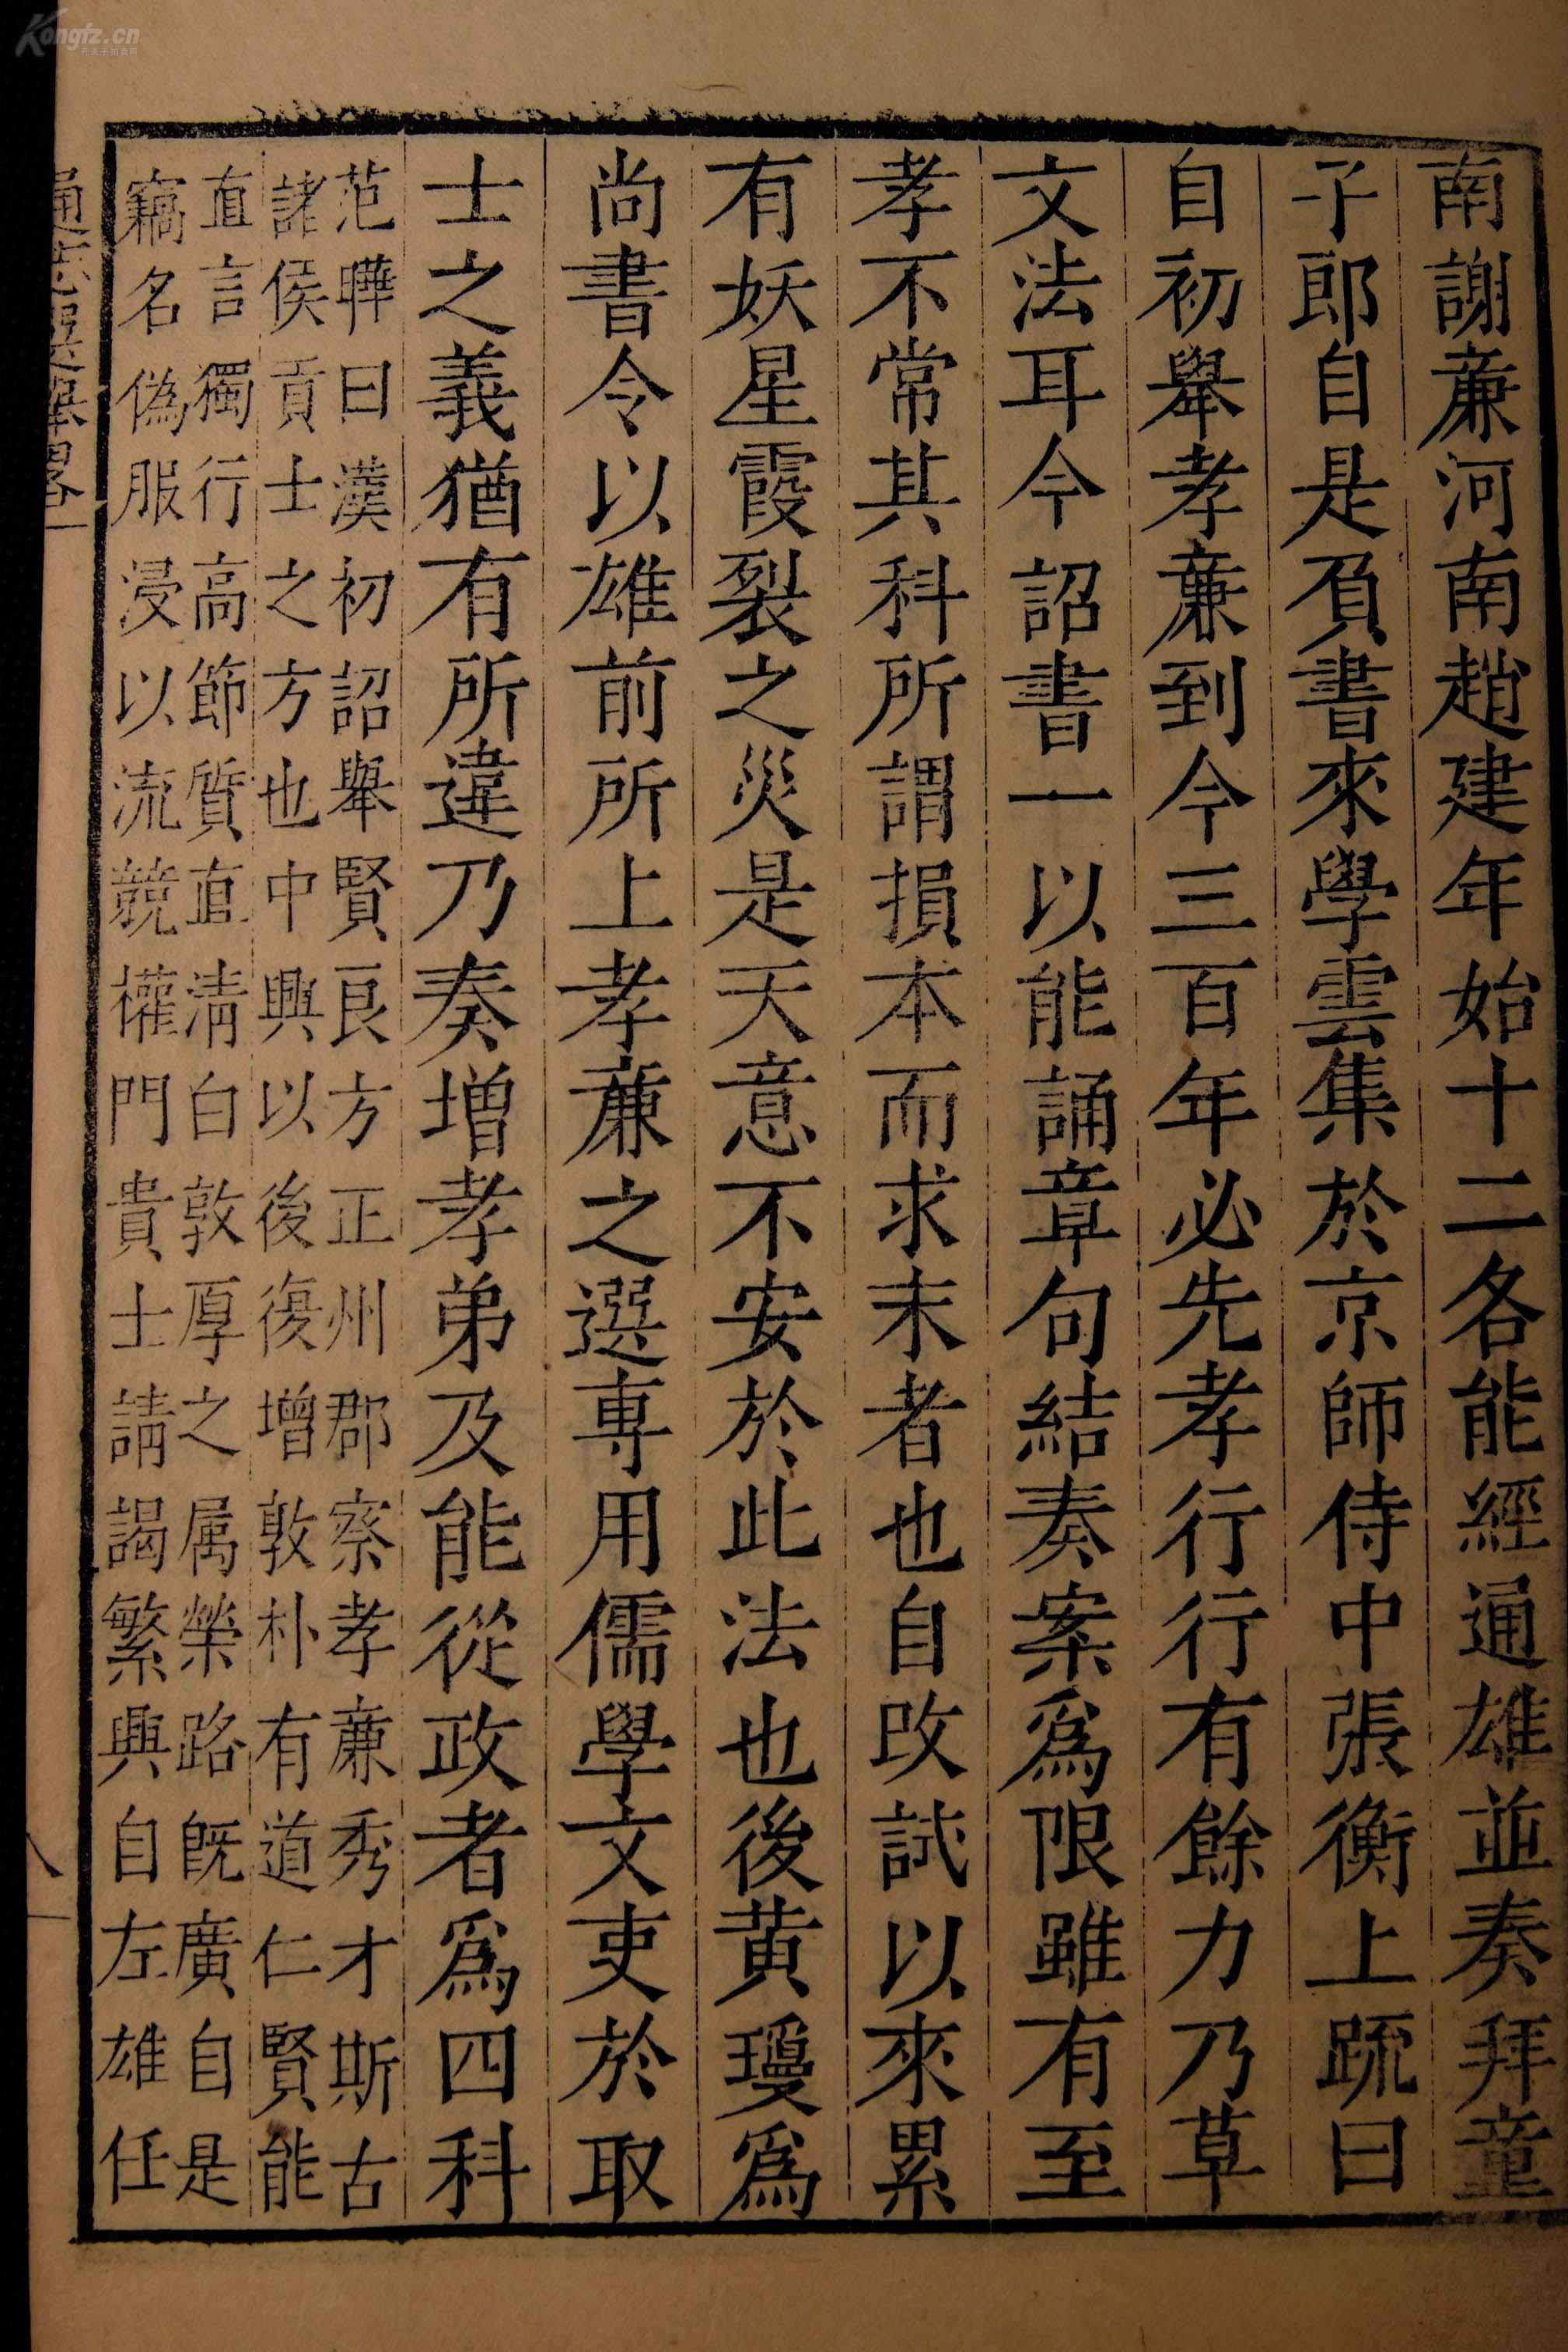 南謝亷河南趙建年始十二各能經通雄並奏拜童
子郎自是負書來學雲集於京師侍中張衡上疏曰
自初舉孝亷到今三百年必先孝行行有餘力乃草
文法耳今詔書一以能誦章句結奏案爲限雖有至
孝不常其科所謂損本而求末者也自改試以來累
有妖星霞裂之災是天意不安於此法也後黄瓊爲
尚書令以雄前所上孝亷之選專用儒學文吏於取
士之義猶有所違乃奏增孝弟及能從政者爲四科
范曄曰漢初詔舉賢良方正州郡察孝亷秀才斯古
諸侯貢士之方也中興以後復增敦朴有道仁賢能
直言獨行高節質直清白敦厚之属榮路既廣自是
竊名偽服浸以流競權門貴士請謁繁興自左雄任
通志選舉畧一
八
Kongfz.cn